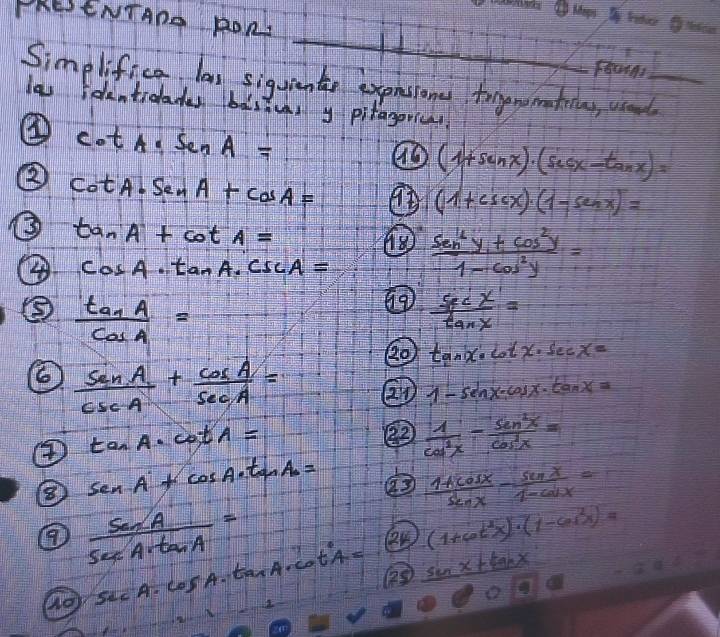 PRESENTADO POR:
FECHA:
Simplifica las siguientes expresiones trigonometricas, usando
las identidades básicas y pitagoricas.
① cot A · Sen A =
② cot A · Sen A + cos A =
③ tan A + cot A =
④ cos A · tan A · csc A =
⑤ tan A / cos A =
⑥ sen A / csc A + cos A / sec A =
⑦ tan A · cot A =
⑧ sen A + cos A · tan A =
⑨ sen A / sec A · tan A =
⑩ sec A · cos A · tan A · cot A =
⑯ (1 + sen x) · (sec x - tan x) =
⑰ (1 + csc x) · (1 - sen x) =
⑱ sen² y + cos² y / 1 - cos² y =
⑲ sec x / tan x =
⑳ tan x · cot x · sec x =
㉑ 1 - sen x · cos x · tan x =
㉒ 1 / cos² x - sen² x / cos² x =
㉓ 1 + cos x / sen x - sen x / 1 - cos x =
㉔ (1 + cot² x) · (1 - cos² x) =
㉕ sen x + tan x